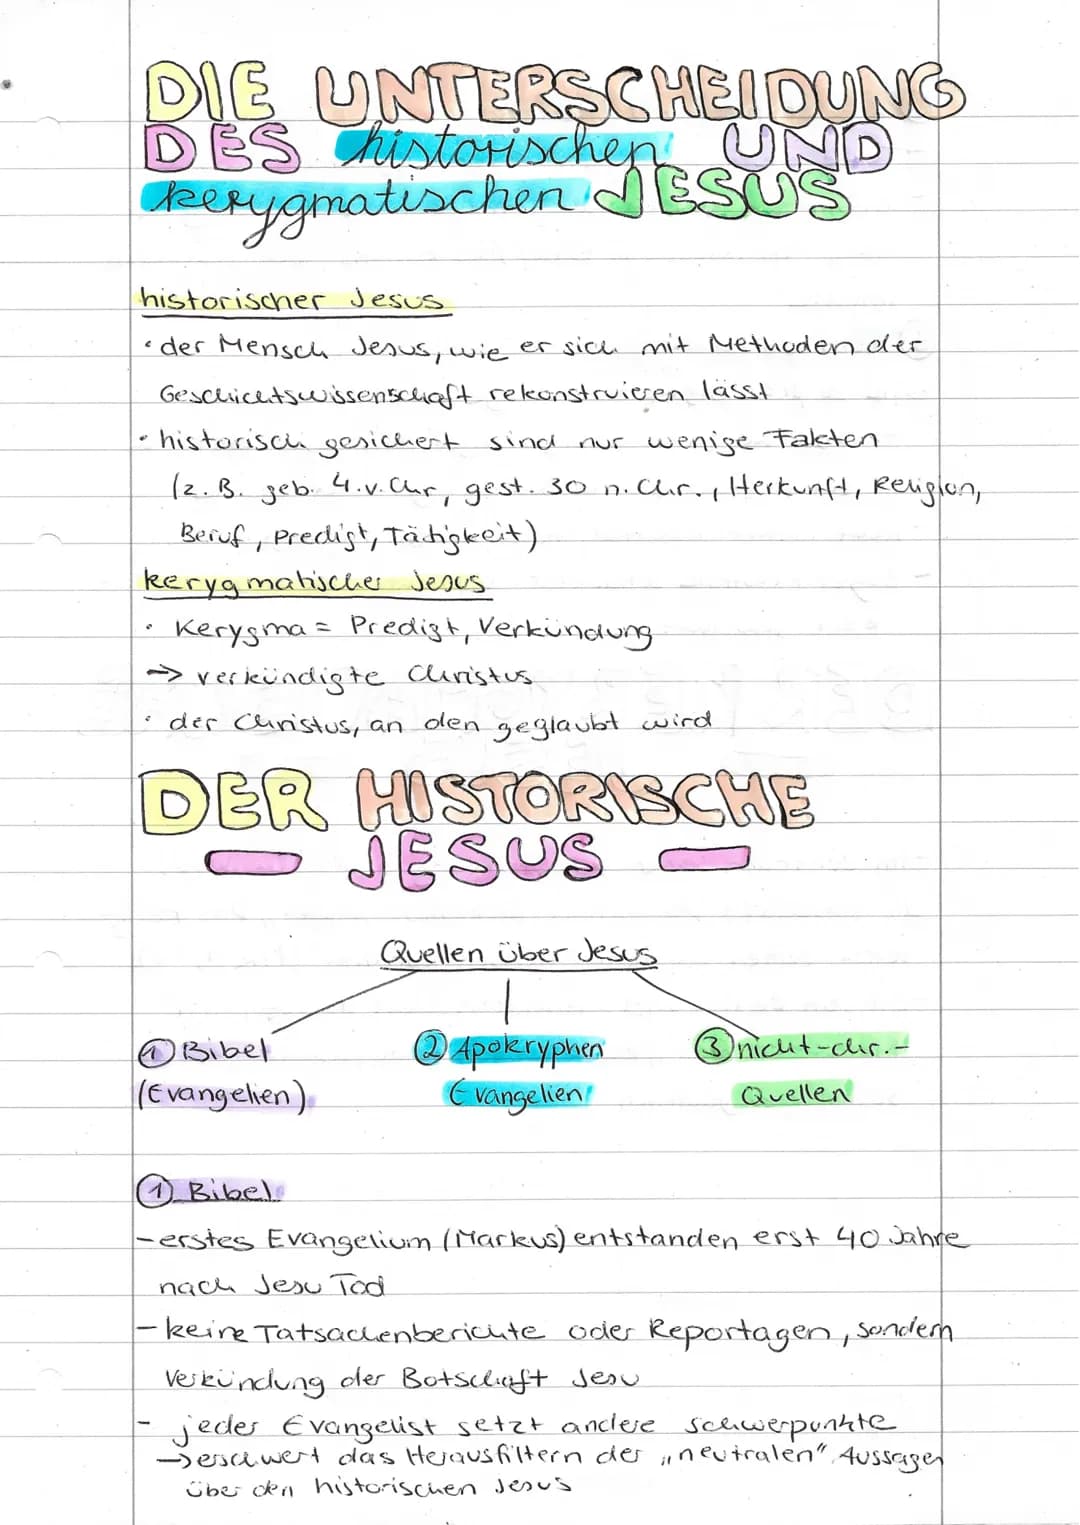 DIE UNTERSCHEIDUNG
DES historischen UND
kerygmatischen JESUS
historischer Jesus
• der Mensch Jesus, wie er sich mit Methoden der
Geschichtswissenschaft rekonstruieren lässt
• historisch gesichert sind nur wenige Fakten
(z. B. geb. 4. v. Chr, gest. 30 n. Chr., Herkunft, Religion,
Beruf, Predigt, Tätigkeit)
kerygmatischer Jesus
• Kerygma = Predigt, Verkündung
→ verkündigte Christus
• der Christus, an den geglaubt wird
DER HISTORISCHE
— JESUS —
Quellen über Jesus
① Bibel ② Apokryphen ③ nicht-chr.-
(Evangelien) Evangelien Quellen
① Bibel
- erstes Evangelium (Markus) entstanden erst 40 Jahre
nach Jesu Tod
- keine Tatsachenberichte oder Reportagen, sondern
Verkündung der Botschaft Jesu
- jeder Evangelist setzt andere Schwerpunkte
→ erschwert das Herausfiltern der „neutralen" Aussagen
über den historischen Jesus